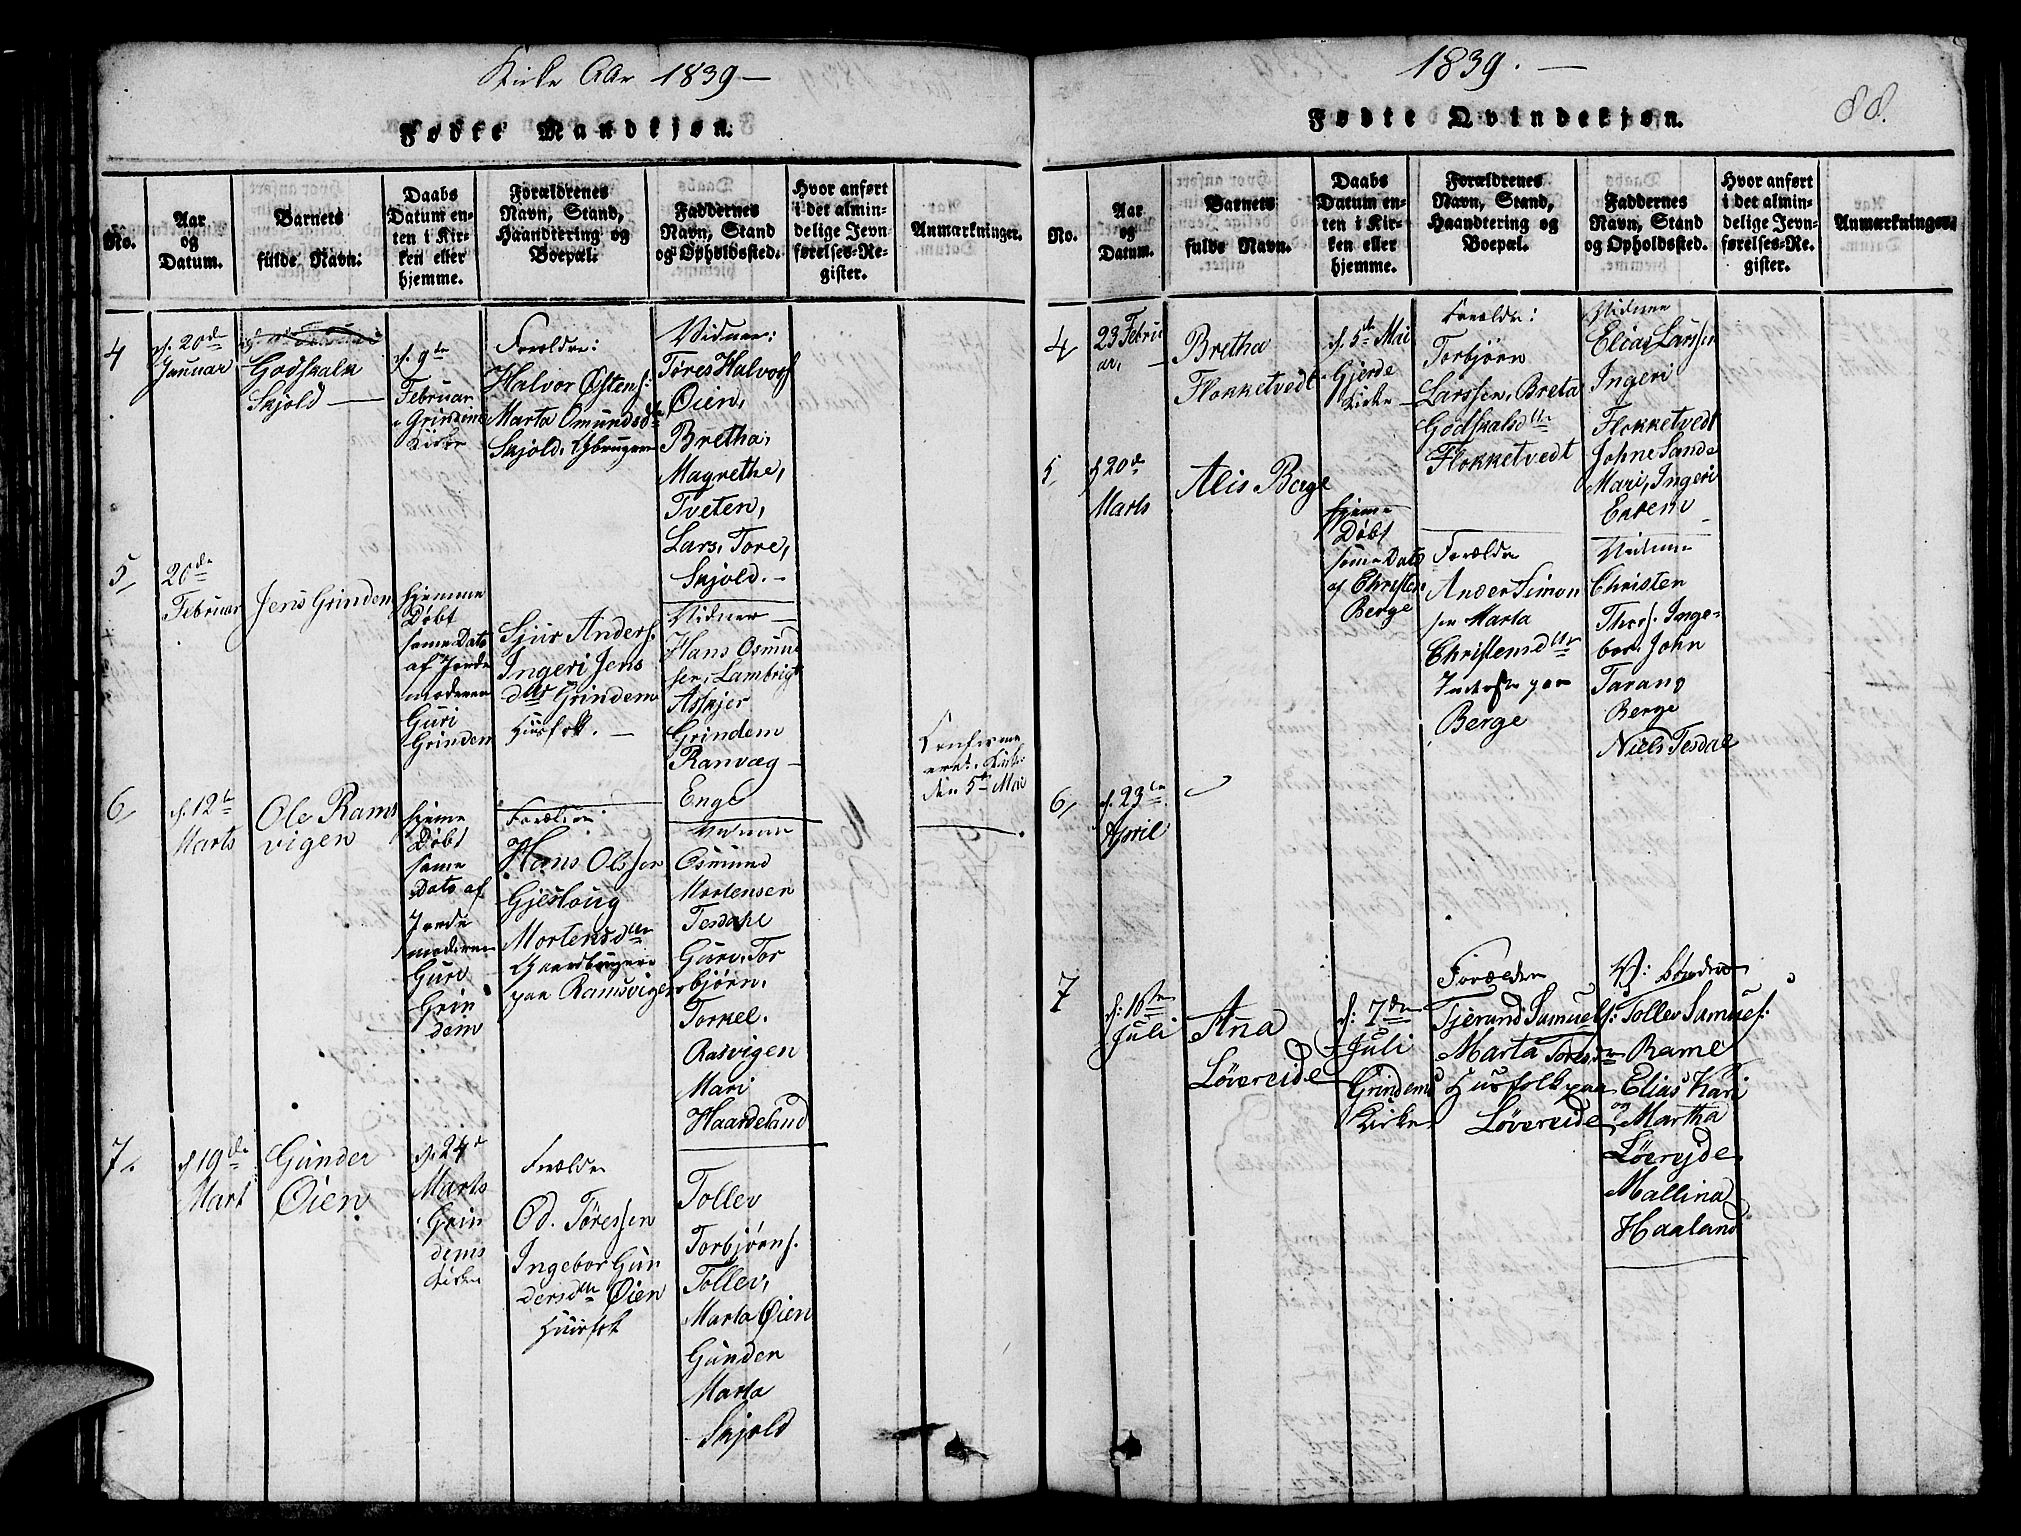 Kirke Aar 1839 —
Fødte Mandkjøn.
No.
Aar
og
Datum.
Barnets
fulde Navn.
Daabs
Datum en-
ten i Kir-
ken eller
hjemme.
Forældrenes
Navn, Stand,
Haandtering og
Boepæl.
Faddernes
Navn, Stand
og Opholdssted.
Hvor anført
i det almin-
delige Jevn-
førelses-Re-
gister.
Anmærkninger.
4
d. 20de
Januar
Godskalk
Skjold —
d. 9de
Februar
Grindens
Kirke
Forældre:
Halvor Østens:
Marta Omundsd
Skjold,
Vidner:
Tøres Halvors
Øien,
Bretha,
Magrethe,
Tveten,
Lars, Tore,
Skjold. —
5
20de
Februar
Jens Grinden
hjemme
Døbt
same Dato
af Jorde
moderen
Guri
Grinden
Sjur Anders.
Ingeri Jens
dtr Grindem
Husfolk. —
Vidner —
Hans Osmund
sen, Lambrigt
Asskjer
Grindem
Ranvæg —
Enge
Confirme
eret i Kirke
den 5te Mai
6
d. 12te
Marts
Ole Rams
vigen
hjeme
Døbt
same
Dato af
Jorde
moderen
Guri
Grin
dem
Forældre:
Hans Olssen
Gjesloug
Mortensdtr
Gaardbrugere
paa Ramsvigen
Vidner
Osmund
Mortensen
Tesdahl
Guri, Tor
bjørn,
Torkel.
Rasvigen
Mari
Haardeland
7.
d 19de
Mart
Gunder
Øien
d. 24de
Marts
i Grin
dems
Kirke
Forældre
Od. Tøressen
Ingebor Gun
dersdtr Øien
Husfolk
Tollev
Torbjørns.
Tollev,
Marta Øien
Gunden
Marta
Skjold
1839. —
88.
Fødte Qvindekjøn.
No.
Aar
og
Datum.
Barnets
fulde Navn.
Daabs
Datum en-
ten i Kir-
ken eller
hjemme.
Forældrenes
Navn, Stand,
Haandtering og
Boepæl.
Faddernes
Navn, Stand
og Opholdssted.
Hvor anført
i det almin-
delige Jevn-
førelses-Re-
gister.
Anmærkninger.
4
23 Febru
ar,
Bretha
Flokketvedt
d. 5te Mai
Gjerde
Kirke
Forældre:
Torbjørn
Larssen, Breta
Godskalsdtr
Flokketvedt
Vidner
Elias Larssen
Ingeri
Flokketvedt
Johne Sande
Mari, Ingeri
5
d 20de
Marts
Alis Berge
hjeme
Døbt
same Dato
af Christen
Berge
Forældre
Ander Simon
sen Marta
Christensdtr
Inderste paa
Berge
Vidner
Christen
Thors. Inge-
bor. John
Tarang
Berge
Niels Tesdal
6
d. 23de
April
7
d: 16de
Juli
Ana
Løvereide
d: 7de
Juli
Grindems
Kirke
Forældre
Tjerand Samuels:
Marta Toresdtr
Husfolk paa
Løvereide
V: Børnene
Tollev Samuels:
Rame
Elias Kari
og Martha
Løereyde
Mallina
Haaland